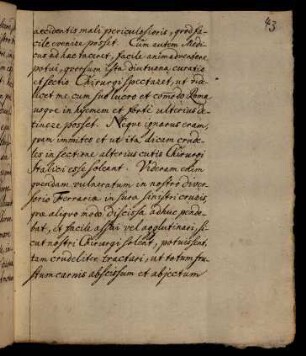 43
accidentis mali periculosioris, quod fa-
cile evenire posset. Cum autem Medi-
cus ad hæc taceret, facile animadvertere
potui, quorsum ista diæturna curatio
et sectio Chirurgi spectaret, ut vide-
licet me cum suo lucro et comodo
usque in hyemem et forte ulterius de-
tinere posset. Neque ignarus eram,
quam immites et ut ita dicam crude-
les in sectione alterius cutis Chirurgi
Italici esse soleant. Videram etiam
quendam vulneratum in nostro diver-
sorio Ferrariæ in sura sinistri cruris,
quæ aliquo modo discissa adhuc pende-
bat, et facile assui vel agglutinari, si-
cut nostri Chirurgi solent, potuisset,
tam crudeliter tractari, ut totum fru-
stum carnis abscissum et abjectum